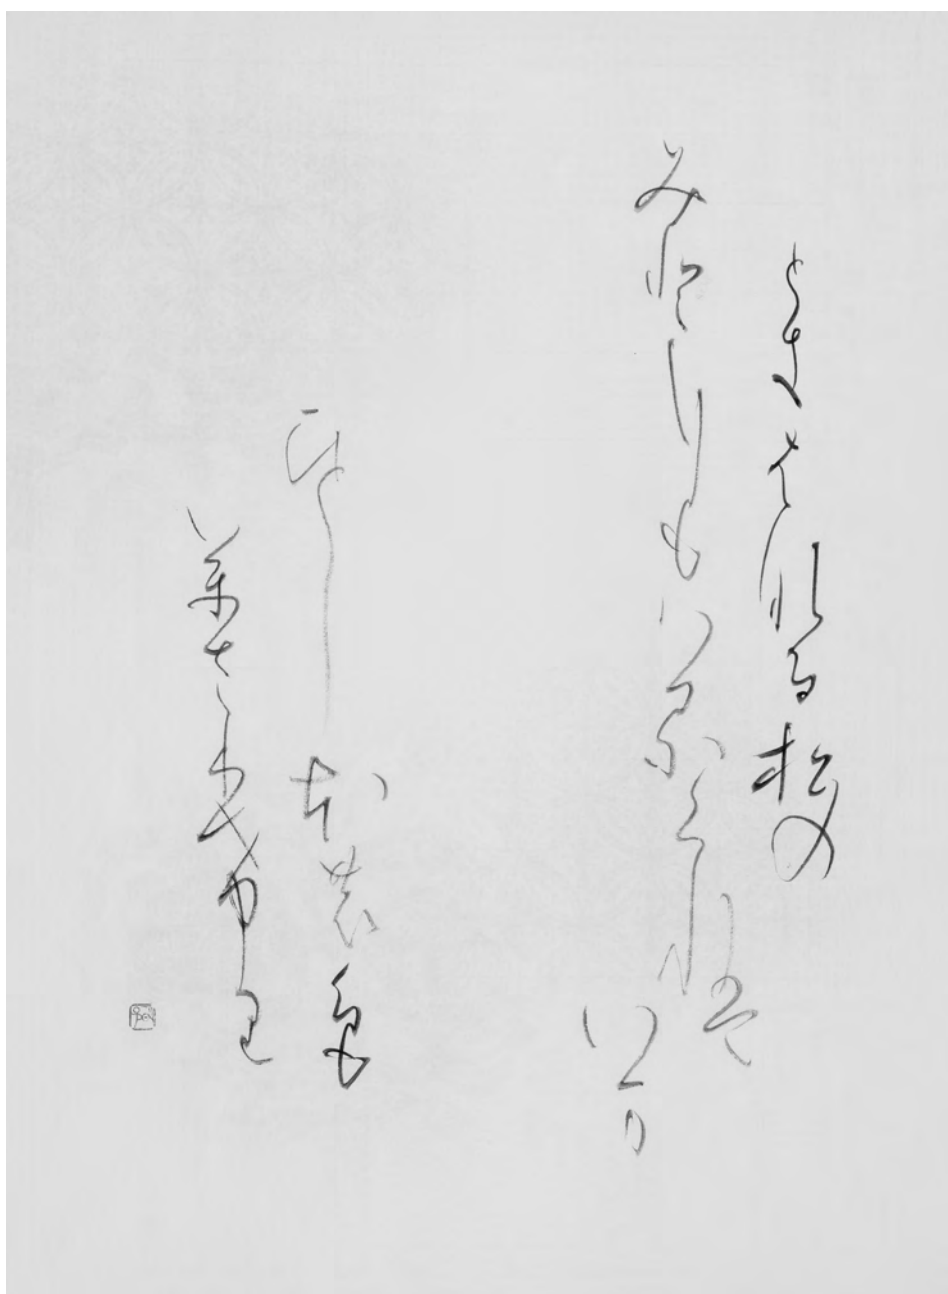 ときはなる松の
みとりもはるくれは
いま
ひとしほの色
まさりけり